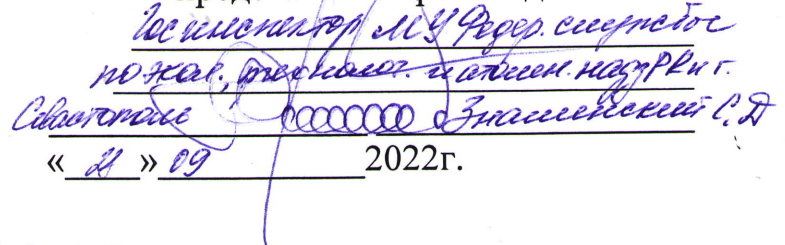 Госинспектор МУ Федер. службы
по экол., технолог. и атомн. надз РК и г.
Севастополь Знаменский С.Д
«21» 09 2022г.